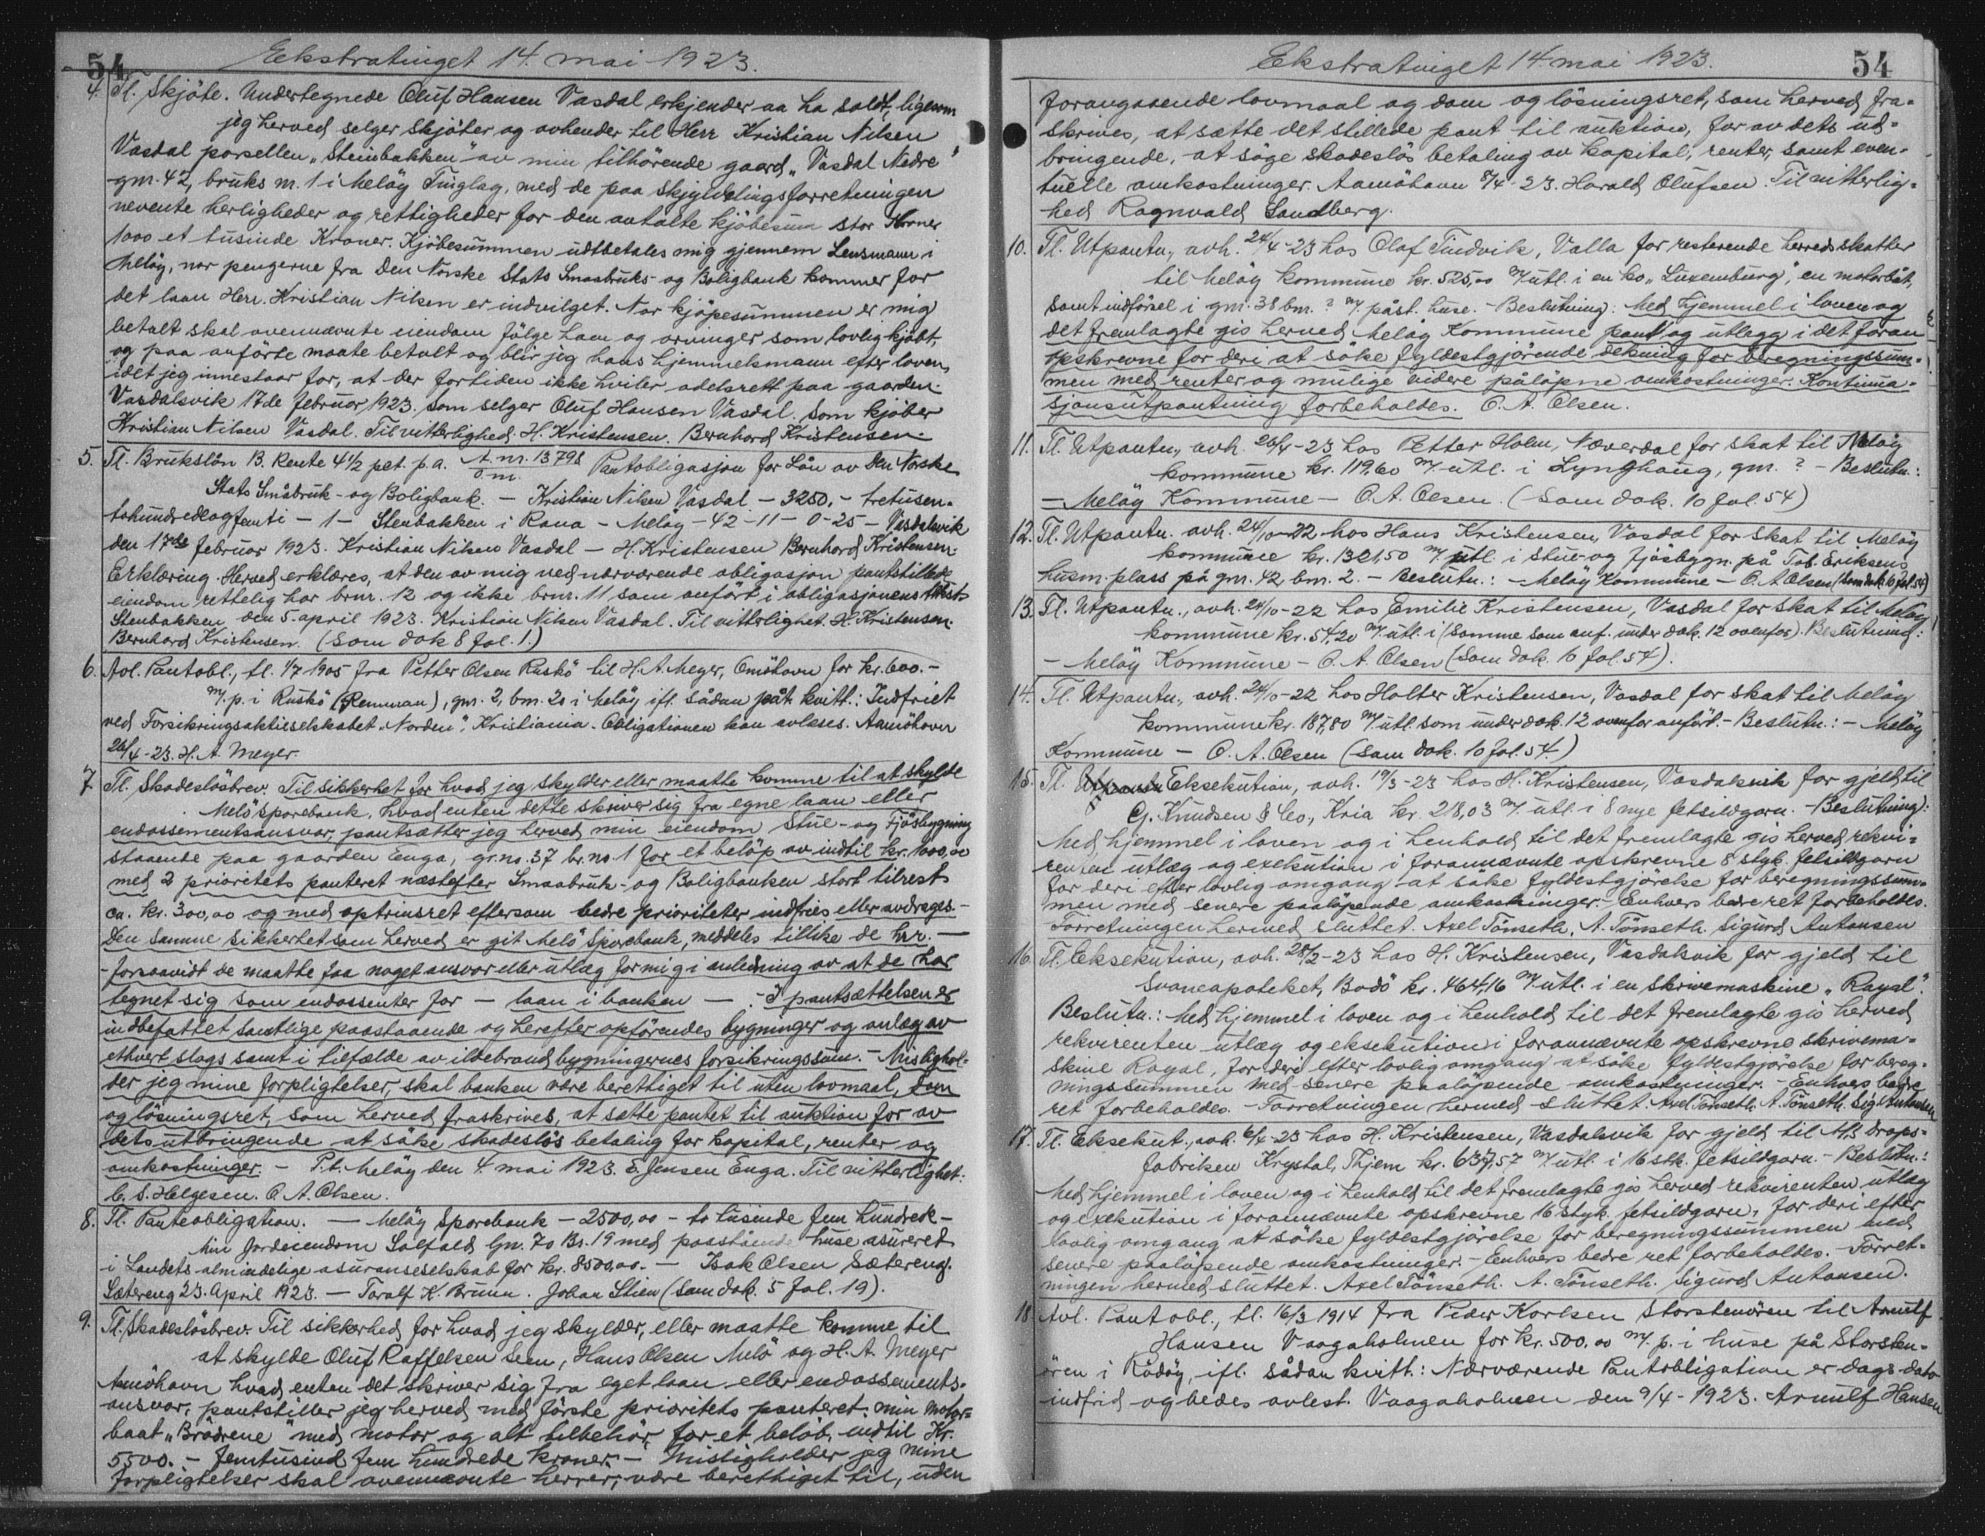 54
Ekstratinget 14. mai 1923.
4. Tl. Skjöte. Undertegnede Oluf Hansen Vasdal erkjender aa ha solgt, ligesom
jeg herved selger skjöter og avhender til Herr Kristian Nilsen
Vasdal parsellen „Steinbakken" av min tilhörende gaard „Vasdal Nedre"
gnr. 42, bruks nr. 1 i Melöy Tinglag, med de paa skyldelingsforretningen
nevnte herligheder og rettigheder for den avtalte kjöbesum stor Kroner
1000 et tusinde Kroner. Kjöbesummen udbetales mig gjennem Lensmann i
Melöy, nar pengerne fra Den Norske Stats Smaabruks- og Boligbank kommer for
det laan Herr. Kristian Nilsen er indvilget. Nar kjöpesummen er mig
betalt skal ovennævnte eiendom fölge ham og arvinger som lovlig kjöbt,
og paa anförte maate betalt og blir jeg hans hjemmelsmann efter loven,
idet jeg innestaar for, at der fortiden ikke hviler odelsrett paa gaarden.
Vasdalsvik 17de februar 1923. som selger Oluf Hansen Vasdal. som kjöber
Kristian Nilsen Vasdal. Til vitterlighed: H. Kristensen. Bernhard Kristensen.
5. Tl. Brukslån B. Rente 4½ pct. p.a. A. nr. 13798 Pantobligasjon for Lån av Den Norske
Stats Småbruk- og Boligbank. — Kristian Nilsen Vasdal — 3250,- tretusen-
tohundredeogfemti — 1 — Stenbakken i Rana — Melöy — 42 — 11 — 0-25 — Vasdalsvik
den 17de februar 1923. Kristian Nilsen Vasdal — H. Kristensen Bernhard Kristensen.
Erklæring. Herved erklæres, at den av mig ved nærværende obligasjon pantstillede
eiendom rettelig har brnr. 12 og ikke brnr. 11, som anfört i obligasjonens tekst.
Stenbakken den 5. april 1923. Kristian Nilsen Vasdal. Til vitterlighet: H. Kristensen.
Bernhard Kristensen. (Som dok 8 fol. 1.)
6. Avl. Pantobl., tl. 1/7 1905 fra Petter Olsen Ruskö til H. A. Meyer, Omöhavn for kr. 600.-
m/p. i Ruskö (Remman), gnr. 2, bnr. 20 i Melöy ifl. sådan påt. kvitt.: Indfriet
ved Forsikringsaktieselskabet „Norden", Kristiania. Obligationen kan avleses. Aamöhavn
26/4-23. H. A. Meyer.
7. Tl. Skadeslösbrev. Til sikkerhet for hvad jeg skylder eller maatte komme til at skylde
Melö sparebank, hvad enten dette skriver sig fra egne laan eller
endossementsansvar, pantsætter jeg herved min eiendom Stue- og Fjösbygning
staaende paa gaarden Enga, gr.no. 37 br.no. 1 for et belöp av indtil kr. 1000,00
med 2 prioritets panteret næstefter Smaabruk- og Boligbanken stort tilrest
ca. kr. 300,00 og med optrinsret eftersom bedre prioriteter indfries eller avdrages. —
Den samme sikkerhet som herved er git Melö Sparebank, meddeles tillike de hrr. —
- forsaavidt de maatte faa noget ansvar eller utlæg for mig i anledning av at de har
tegnet sig som endossenter for — laan i banken — : I pantsættelsen er
indbefattet samtlige paastaaende og herefter opförendes bygninger og anlæg av
ethvert slags samt i tilfælde av ildebrand bygningernes forsikringssum. — Mislighol-
der jeg mine forpligtelser, skal banken være berettiget til uten lovmaal, dom
og lösningsret, som herved fraskrives, at sætte pantet til auktion for av
dets utbringende at söke skadeslös betaling for kapital, renter og
omkostninger. — P.t. Melöy den 4. mai 1923. E. Jensen Enga. Til vitterlighet:
C. S. Helgesen. O. A. Olsen.
8. Tl. Panteobligation. — Melöy Sparebank — 2500,00 — to tusinde fem hundrede —
Min Jordeiendom Solfald Gn. 70 Br. 19 med paastående huse asureret
i Landets almindelige asuranseselskab for kr. 8500,00. — Isak Olsen Sætereng.
Sætereng 23. April 1923. — Toralf K Bruun. Johan Stien (som dok. 5 fol. 19).
9. Tl. Skadeslösbrev. Til sikkerhed for hvad jeg skylder, eller maatte komme til
at skylde Oluf Raffelsen Seen, Hans Olsen Melö og H. A. Meyer
Aamöhavn hvad enten det skriver sig fra eget laan eller endossements-
ansvar, pantstiller jeg herved med förste prioritets panteret: min Motor-
baat „Brödrene" med motor og alt tilbehör, for et belöb, indtil Kr.
5500. — Femtusind fem hundrede kroner. — Misligholder jeg mine
forpligtelser skal ovennævnte herrer, være berettiget til, uden
54
Ekstratinget 14. mai 1923.
forangaaende lovmaal og dom og lösningsret, som herved fra-
skrives, at sætte det stillede pant til auktion, for av dets ud-
bringende, at söge skadeslös betaling av kapital, renter, samt even-
tuelle omkostninger. Aamöhavn 8/4-23. Harald Olufsen. Til vitterlig-
hed Ragnvald Sandberg.
10. Tl. Utpantn., avh. 24/4-23 hos Olaf Tindvik, Valla for resterende herredsskatter
til Melöy kommune kr. 525,00 m/utl. i en ko „Luxemburg", en motorbåt,
samt indförsel i gnr. 38 bnr. ? m/ påst. huse. - Beslutning: Med hjemmel i loven og
det fremlagte gis herved Melöy Kommune pant og utlegg i det foran
opskrevne for deri at söke fyldestgjörende dekning for beregningssum-
men med renter og mulige videre påløpne omkostninger. Kontinua-
sjonsutpantning forbeholdes. O. A. Olsen.
11. Tl. Utpantn., avh. 26/4-23 hos Petter Holm, Næverdal for skat til Melöy
kommune kr. 119,60 m/utl. i Lynghaug, gnr. ? — Beslutn.:
— Melöy Kommune — O. A. Olsen. (Som dok. 10 fol. 54)
12. Tl. Utpantn. avh. 24/10-22 hos Hans Kristensen, Vasdal for skat til Melöy
kommune kr. 1321,50 m/utl. i stue og fjösbygn. på Tob. Eriksens
husm.plass på gnr. 42, bnr. 2. — Beslutn.: — Melöy Kommune — O. A. Olsen (Som dok. 10 fol. 54)
13. Tl. Utpantn., avh. 24/10-22 hos Emilie Kristensen, Vasdal for skat til Melöy
kommune kr. 54,20 m/utl. i (Samme som anf. under dok. 12 ovenfor). Beslutning:
— Melöy Kommune — O. A. Olsen (Som dok. 10 fol. 54).
14. Tl. Utpantn., avh. 24/10-22 hos Halter Kristensen, Vasdal for skat til Melöy
kommune kr. 187,80 m/utl. som under dok. 12 ovenfor anfört. — Beslutn.: — Melöy
Kommune — O. A. Olsen (Som dok. 10 fol. 54.)
15. Tl. Eksekution, avh. 19/3-23 hos H. Kristensen, Vasdalsvik for gjeld til
Cj. Knudsen & Co, Kria kr. 218,03 m/utl. i 8 nye fetsildgarn. — Beslutning:
Med hjemmel i loven og i henhold til det fremlagte gis herved rekvi-
renten utlæg og exekution i forannævnte opskrevne 8 styk. fetsildgarn
for deri efter lovlig omgang at söke fyldestgjörelse for beregningssum-
men med senere paalöpende omkostninger. - Enhvers bedre ret forbeholdes.
Forretningen hermed sluttet. Axel Tönseth, A. Tönseth. Sigurd Antonsen
16. Tl. Eksekution, avh. 28/2-23 hos H. Kristensen, Vasdalsvik for gjeld til
Svaneapoteket, Bodö kr. 464,16 m/utl. i en skrivemaskine „Royal".
Beslutn.: Med hjemmel i loven og i henhold til det fremlagte gis herved
rekvirenten utlæg og eksekution i forannævnte opskrevne skrivema-
skine Royal, for deri efter lovlig omgang at söke fyldestgjörelse for bereg-
ningssummen med senere paalöpende omkostninger. — Enhvers bedre
ret forbeholdes. — Forretningen hermed sluttet. Axel Tönseth. A. Tönseth. Sig. Antonsen
17. Tl. Eksekut., avh. 6/4-23 hos H. Kristensen, Vasdalsvik for gjeld til A/S Drops-
fabriken Krystal, Thjem kr. 637,57 m/utl. i 16 stk. fetsildgarn. — Beslutn.:
Med hjemmel i loven og i henhold til det fremlagte gis herved rekvirenten utlæg
og exekution i forannævnte opskrevne 16 styk. fetsildgarn, for deri efter
lovlig omgang at söke fyldestgjörelse for beregningssummen med
senere paalöpende omkostninger. — Enhvers bedre ret forbeholdes. — Forret-
ningen hermed sluttet. Axel Tönseth. A. Tönseth. Sigurd Antonsen.
18. Avl. Pantobl., tl. 16/3 1914 fra Peder Karlsen Storstenören til Arnulf
Hansen Vaagaholmen for kr. 500,00 m/p. i huse på Storsten-
ören i Rödöy, ifl. sådan kvitt.: Nærværende Pantobligation er dags dato
indfrid og bedes avlest. Vaagaholmen den 9/4-1923. Arnulf Hansen